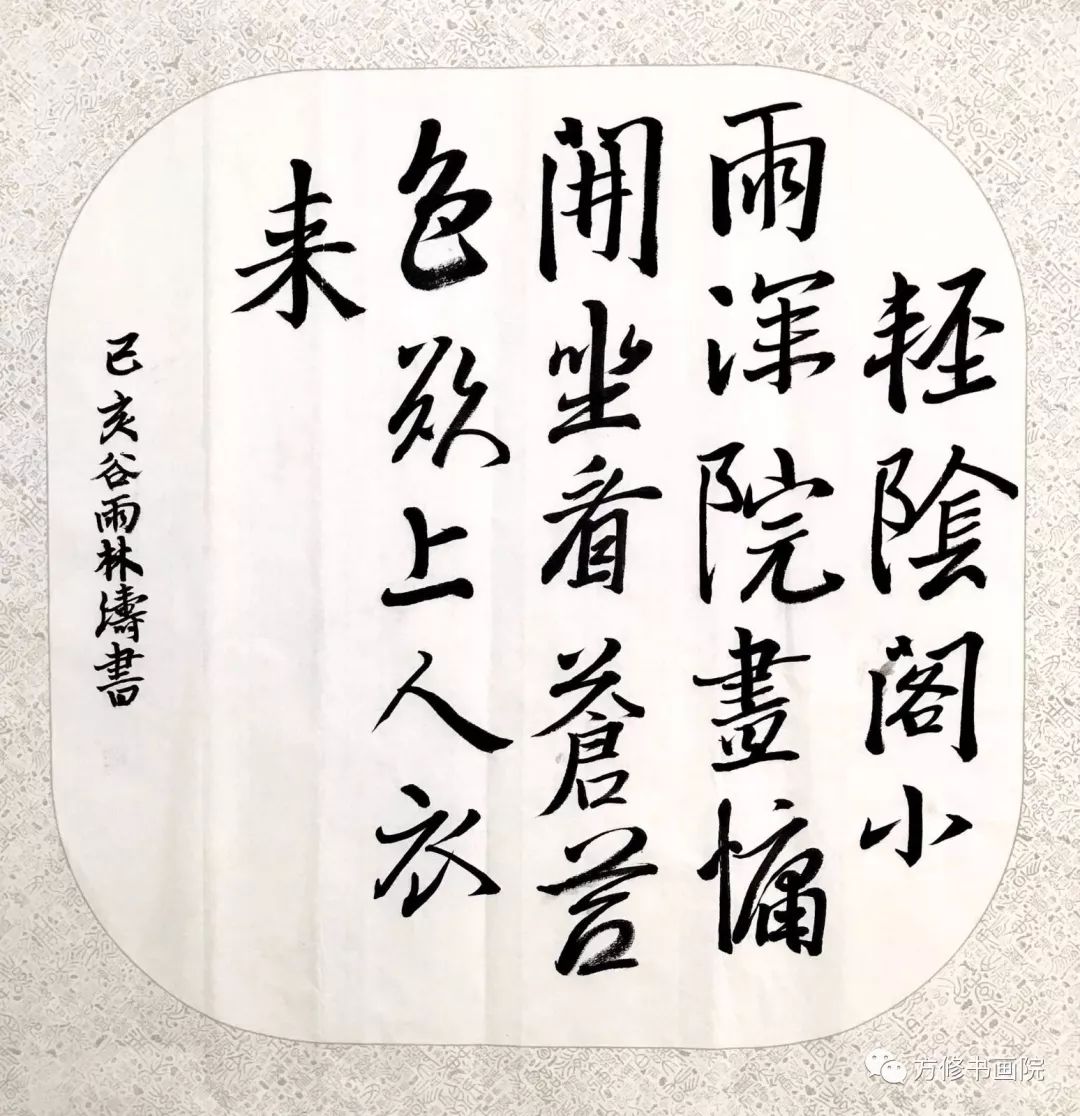 輕陰閣小
雨深院晝慵
開坐看蒼苔
色欲上人衣
来
己亥谷雨林濤書
方修书画院